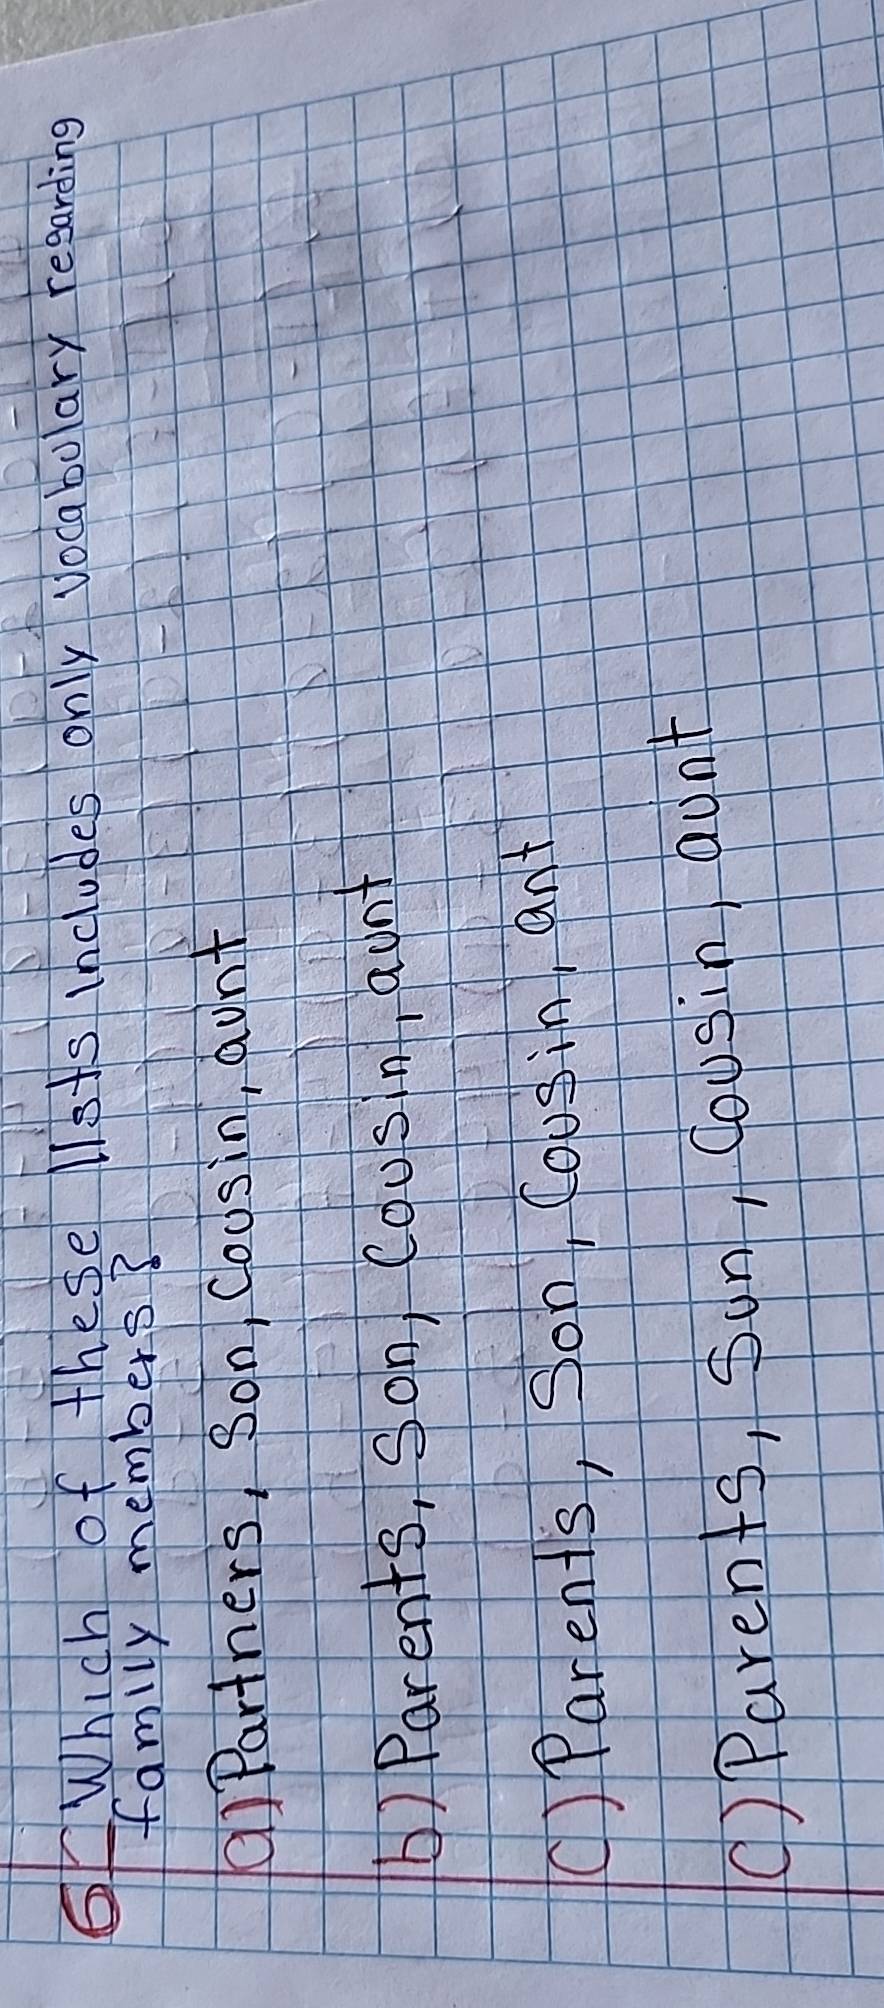 6- Which of these lists includes only vocabulary regarding
family members?
a) Partners, Son, Cousin, aunt
b) Parents, Son, Cousin, aunt
c) Parents, Son, Cousin, ant
c) Parents, Sun, Cousin, aunt